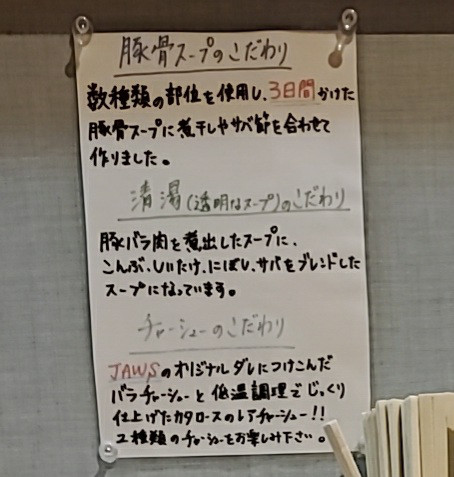 豚骨スープのこだわり
数種類の部位を使用し、3日間かけた
豚骨スープに煮干しやサバ節を合わせて
作りました。
清湯(透明なスープ)のこだわり
豚バラ肉を煮出したスープに、
こんぶ、しいたけ、にぼし、サバをブレンドした
スープになっています。
チャーシューのこだわり
JAWSのオリジナルダレにつけこんだ
バラチャーシューと低温調理でじっくり
仕上げたカタロースのレアチャーシュー!!
2種類のチャーシューをお楽しみ下さい。